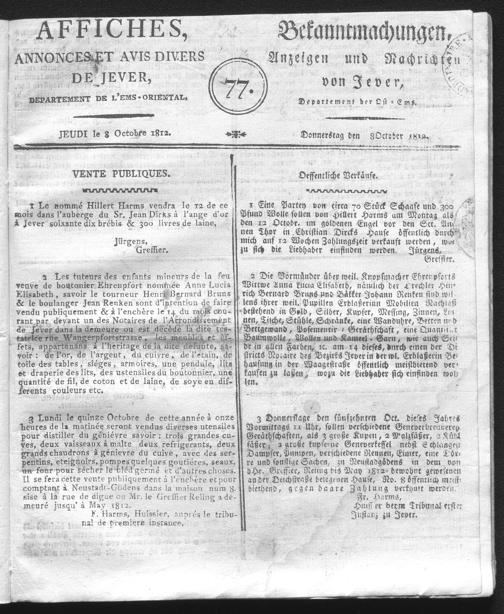 AFFICHES,
ANNONCES ET AVIS DIVERS
DE JEVER,
DEPARTEMENT DE L'EMS-ORIENTAL.
JEUDI le 8 Octobre 1812.
77.
Bekanntmachungen,
Anzeigen und Nachrichten
von Jever,
Departement der Ost-Ems.
Donnerstag den 8 October 1812.
VENTE PUBLIQUES.
1 Le nommé Hillert Harms vendra le 12 de ce
mois dans l'auberge du Sr. Jean Dirks à l'ange d'or
à Jever soixante dix brébis & 300 livres de laine,
Jürgens,
Greffier.
2 Les tuteurs des enfants mineurs de la feu
veuve de boutonier Ehrenpfort nommée Anne Lucia
Elisabeth, savoir le tourneur Henri Bernard Bruns
& le boulanger Jean Renken sont d'intention de faire
vendu publiquement & à l'enchère le 14 du mois cou-
rant par devant un des Notaires de l'Arrondissement
de Jever dans la demeure ou est décédé la dite tes-
tatrice rue Wangerpfortstrasse, les meubles et ef-
fets, appartenans à l'heritage de la dite défunte, sa-
voir: de l'or, de l'argent, du cuivre, de l'étain, de
toile des tables, sièges, armoires, une pendule, lits
de draperie des lits, des ustensiles du boutonier, une
quantité de fil, de coton et de laine, de soye en dif-
férents couleurs etc.
3 Lundi le quinze Octobre de cette année à onze
heures de la matinée seront vendues divers utensiles
pour distiller du génièvre savoir: trois grandes cu-
ves, deux vaisseaux à malt, deux refrigerants, deux
grands chaudrons à génièvre du cuive, avec des ser-
pentins, eteignoirs, pompes quelques goutières, seaux
un four pour sècher le blé germé et d'autres choses.
Il se fera cette vente publiquement à l'enchère et pour
comptant à Neustadt-Gödens dans la maison num 8
sise à la rue de digue ou Mr. le Greffier Reling a de-
meuré jusqu'à May 1812.
F. Harms, Huissier, auprés du tribu-
nal de première instance.
Oeffentliche Verkäufe.
1 Eine Partey von circa 70 Stück Schaafe und 300
Pfund Wolle sollen von Hillert Harms am Montag als
den 12 October im goldenen Engel vor den St. An-
nen Thor in Christian Dircks Hause öffentlich durch
mich auf 12 Wochen Zahlungszeit verkauft werden, wo-
zu sich die Liebhaber einfinden werden. Jürgens.
Greffier.
2 Die Vormünder über weil. Knopfmacher Ehrenpforts
Wittwe Anna Lucia Elisabeth, nämlich der Drechsler Hin-
rich Bernard Bruns und Bäcker Johann Renken sind wil-
lens ihrer weil. Pupillen Erblasserinn Mobiliar Nachlaß
bestehend in Gold, Silber, Kupfer, Messing, Zinnen, Lin-
nen, Tische, Stühle, Schränke, eine Wanduhr, Betten und
Bettgewand, Posementir-Geräthschaft, eine Quantität
Baumwolle, Wollen und Kameel-Garn, wie auch Seide
in allen Farben &c. am 14 dieses, durch einen der Di-
stricts Notaire des Bezirks Jever in der wl. Erblasserin Be-
hausung in der Waagestraße öffentlich meistbietend ver-
kaufen zu lassen, wozu die Liebhaber sich einfinden wol-
len.
3 Donnerstags den funfzehnten Oct. dieses Jahrs
Vormittags 11 Uhr, sollen verschiedene Geneverbrennerey
Geräthschaften, als 3 große Kupen, 2 Malzfässer, 2 Kühl
fässer, 2 große kupferne Geneverkessel nebst Schlangen
Dampfer, Pumpen, verschiedene Rennen, Eimer, eine Dör-
re und sonstige Sachen, zu Neustadtgödens in dem von
Hr. Greffier, Reling bis May 1812 bewohnt gewesenen
an der Deichstraße belegenen Hause, No. 8 öffentlich meist-
bietend, gegen baare Zahlung verkauft werden.
Fr. Harms,
Huissier beym Tribunal erster
Instanz zu Jever.